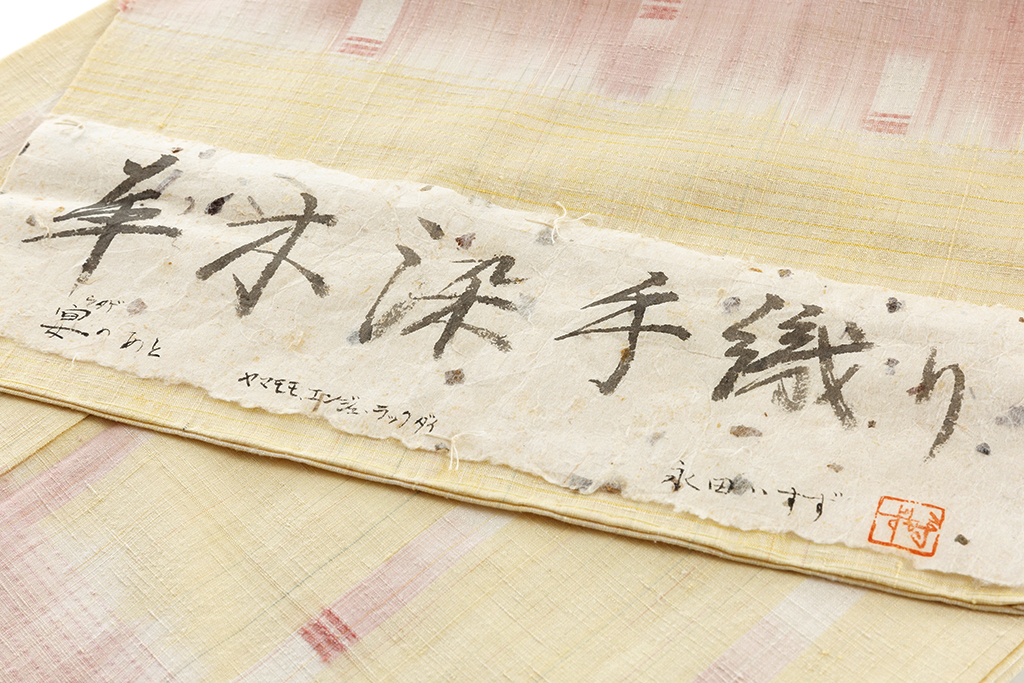 草木染手織り
うたげ
宴のあと
ヤマモモ、エンジュ、ラックダイ
永田いすず